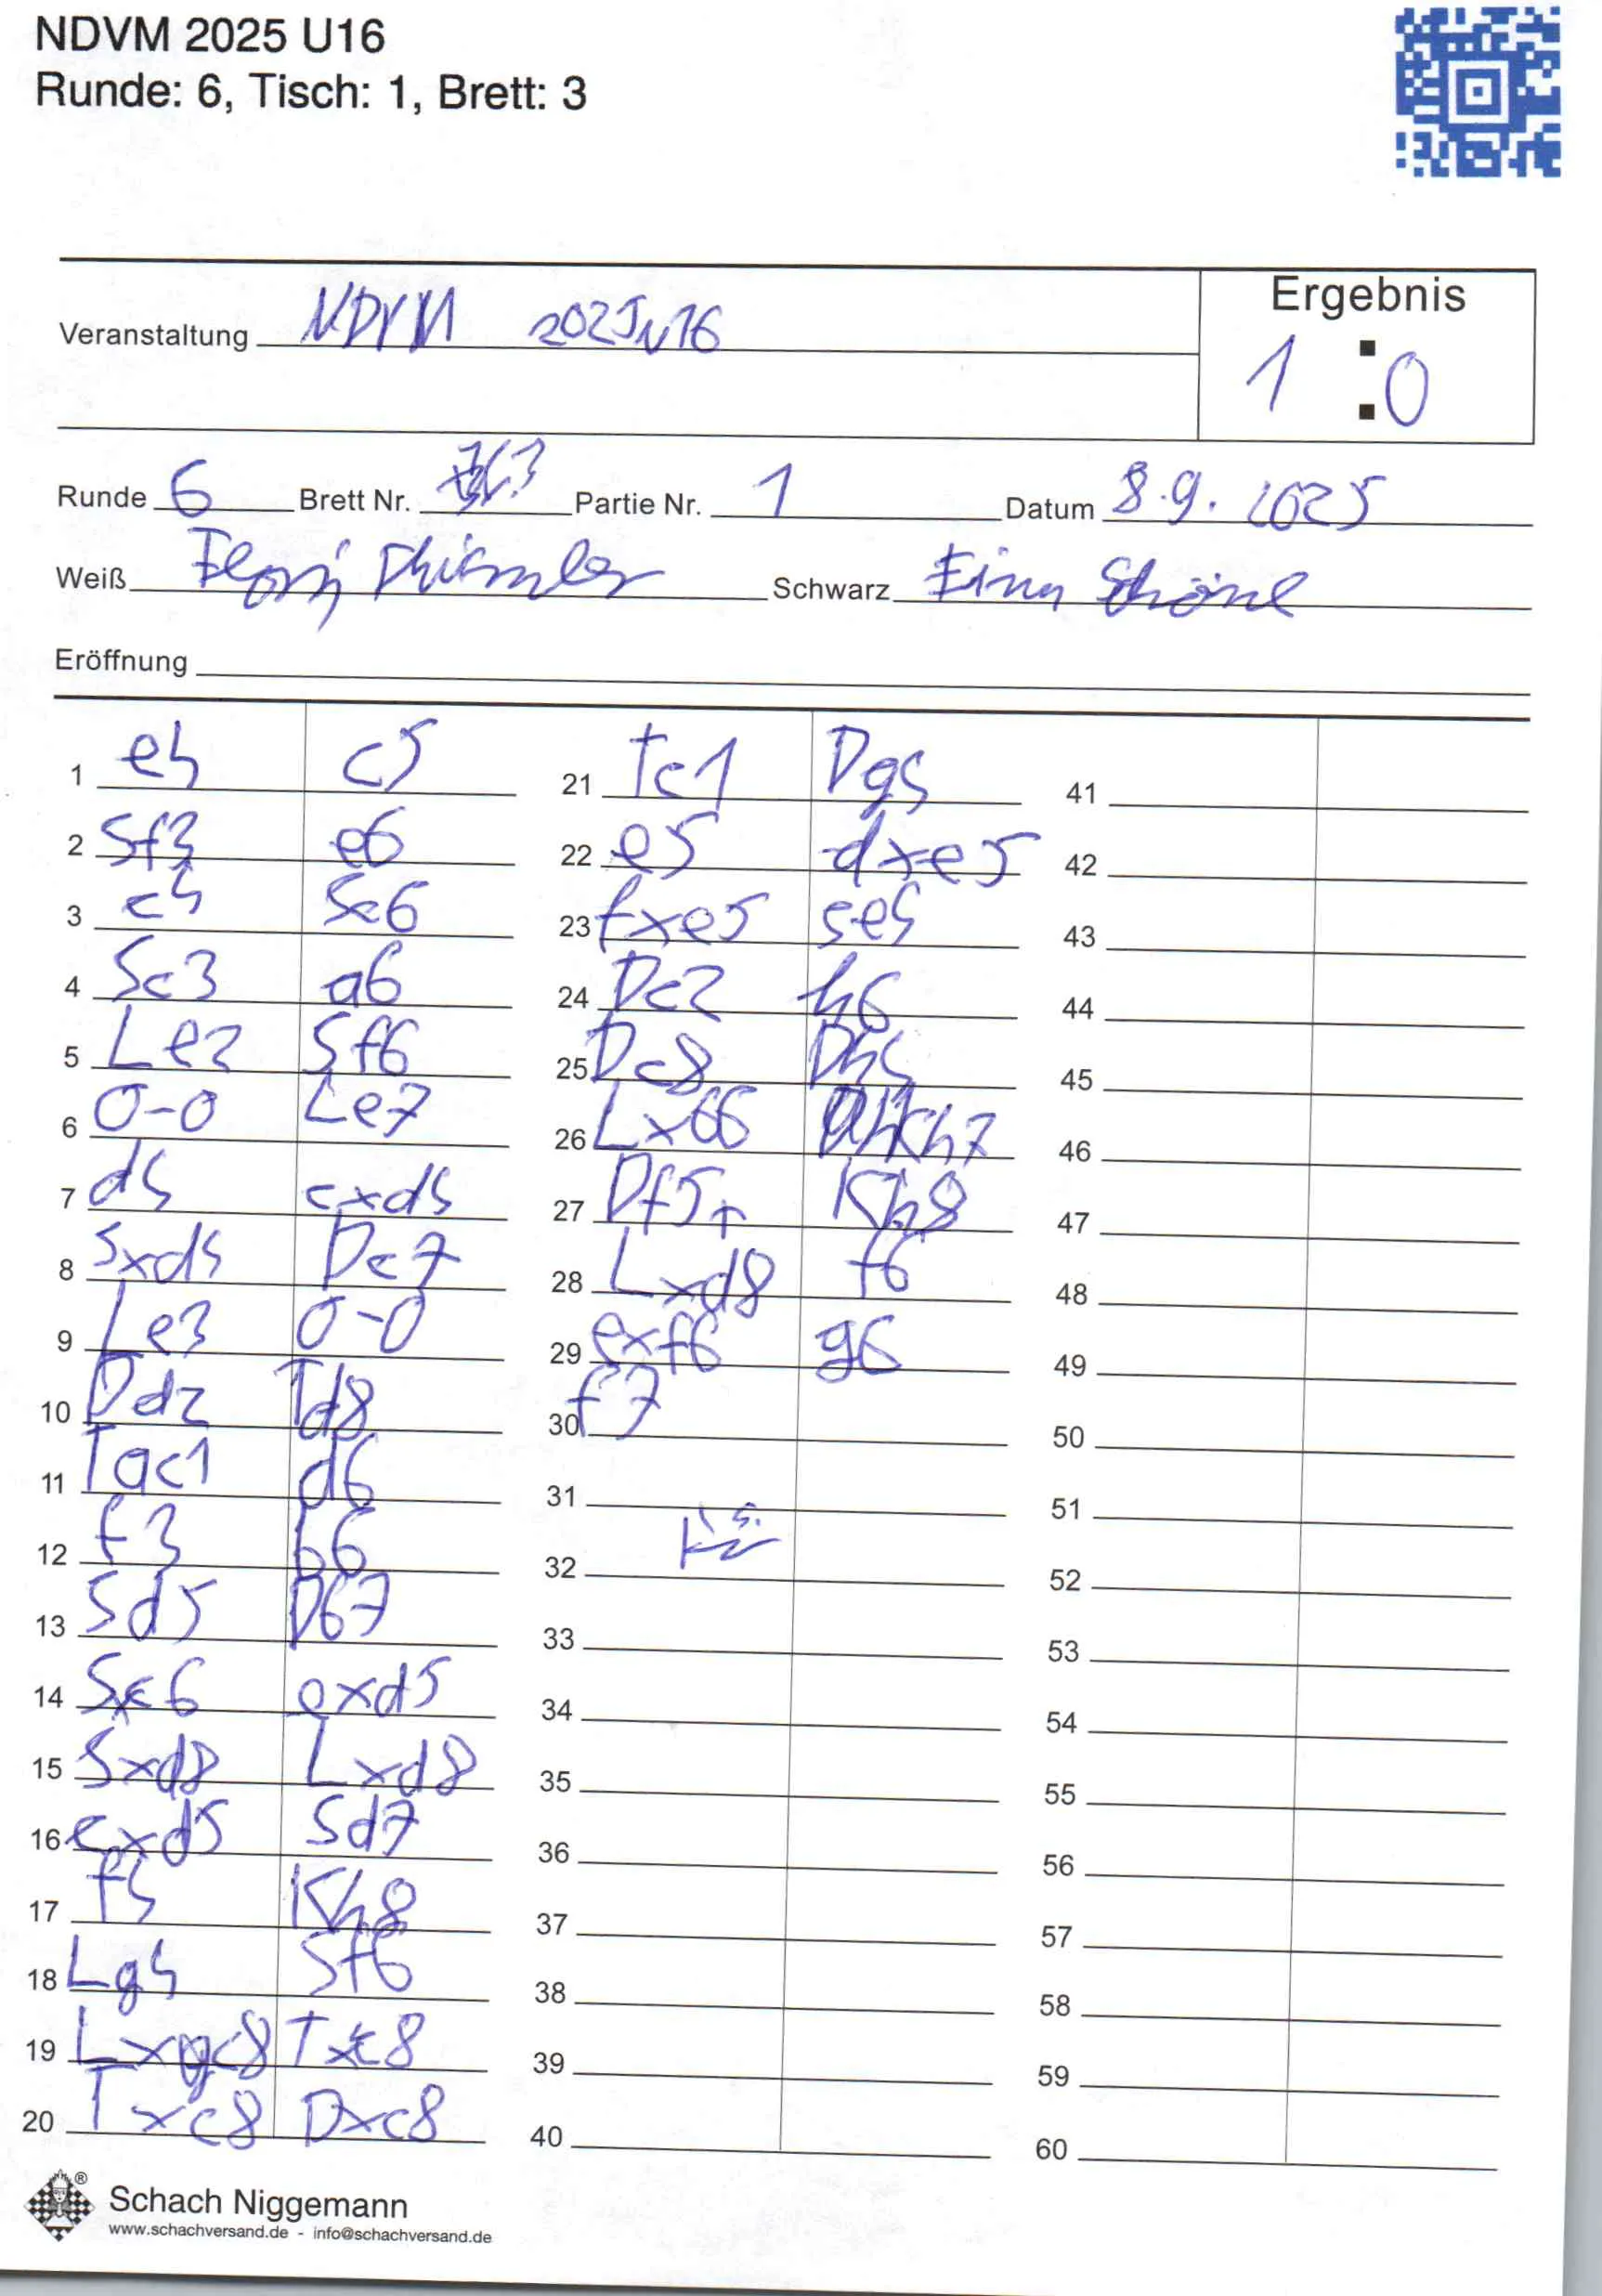 NDVM 2025 U16
Runde: 6, Tisch: 1, Brett: 3
Ergebnis
Veranstaltung NDVM 2025 U16
1 : 0
Runde 6 Brett Nr. 3 Partie Nr. 1 Datum 8.9. 2025
Weiß Schwarz
Eröffnung
1 e4 c5 21 Tc1 Dg4 41
2 Sf3 e6 22 e5 dxe5 42
3 c4 Sc6 23 fxe5 Se4 43
4 Sc3 a6 24 Dc2 h6 44
5 Le2 Sf6 25 Dc8 Dh4 45
6 0-0 Le7 26 Lxb6 Kh7 46
7 d4 cxd4 27 Df5+ Kh8 47
8 Sxd4 Dc7 28 Lxd8 f6 48
9 Le3 0-0 29 exf6 g6 49
10 Dd2 Td8 30 f7 50
11 Tac1 d6 31 51
12 f3 b6 32 52
13 Sd5 Db7 33 53
14 Sxc6 exd5 34 54
15 Sxd8 Lxd8 35 55
16 cxd5 Sd7 36 56
17 f4 Kh8 37 57
18 Lg4 Sf6 38 58
19 Lxc8 Txc8 39 59
20 Txc8 Dxc8 40 60
Schach Niggemann
www.schachversand.de - info@schachversand.de